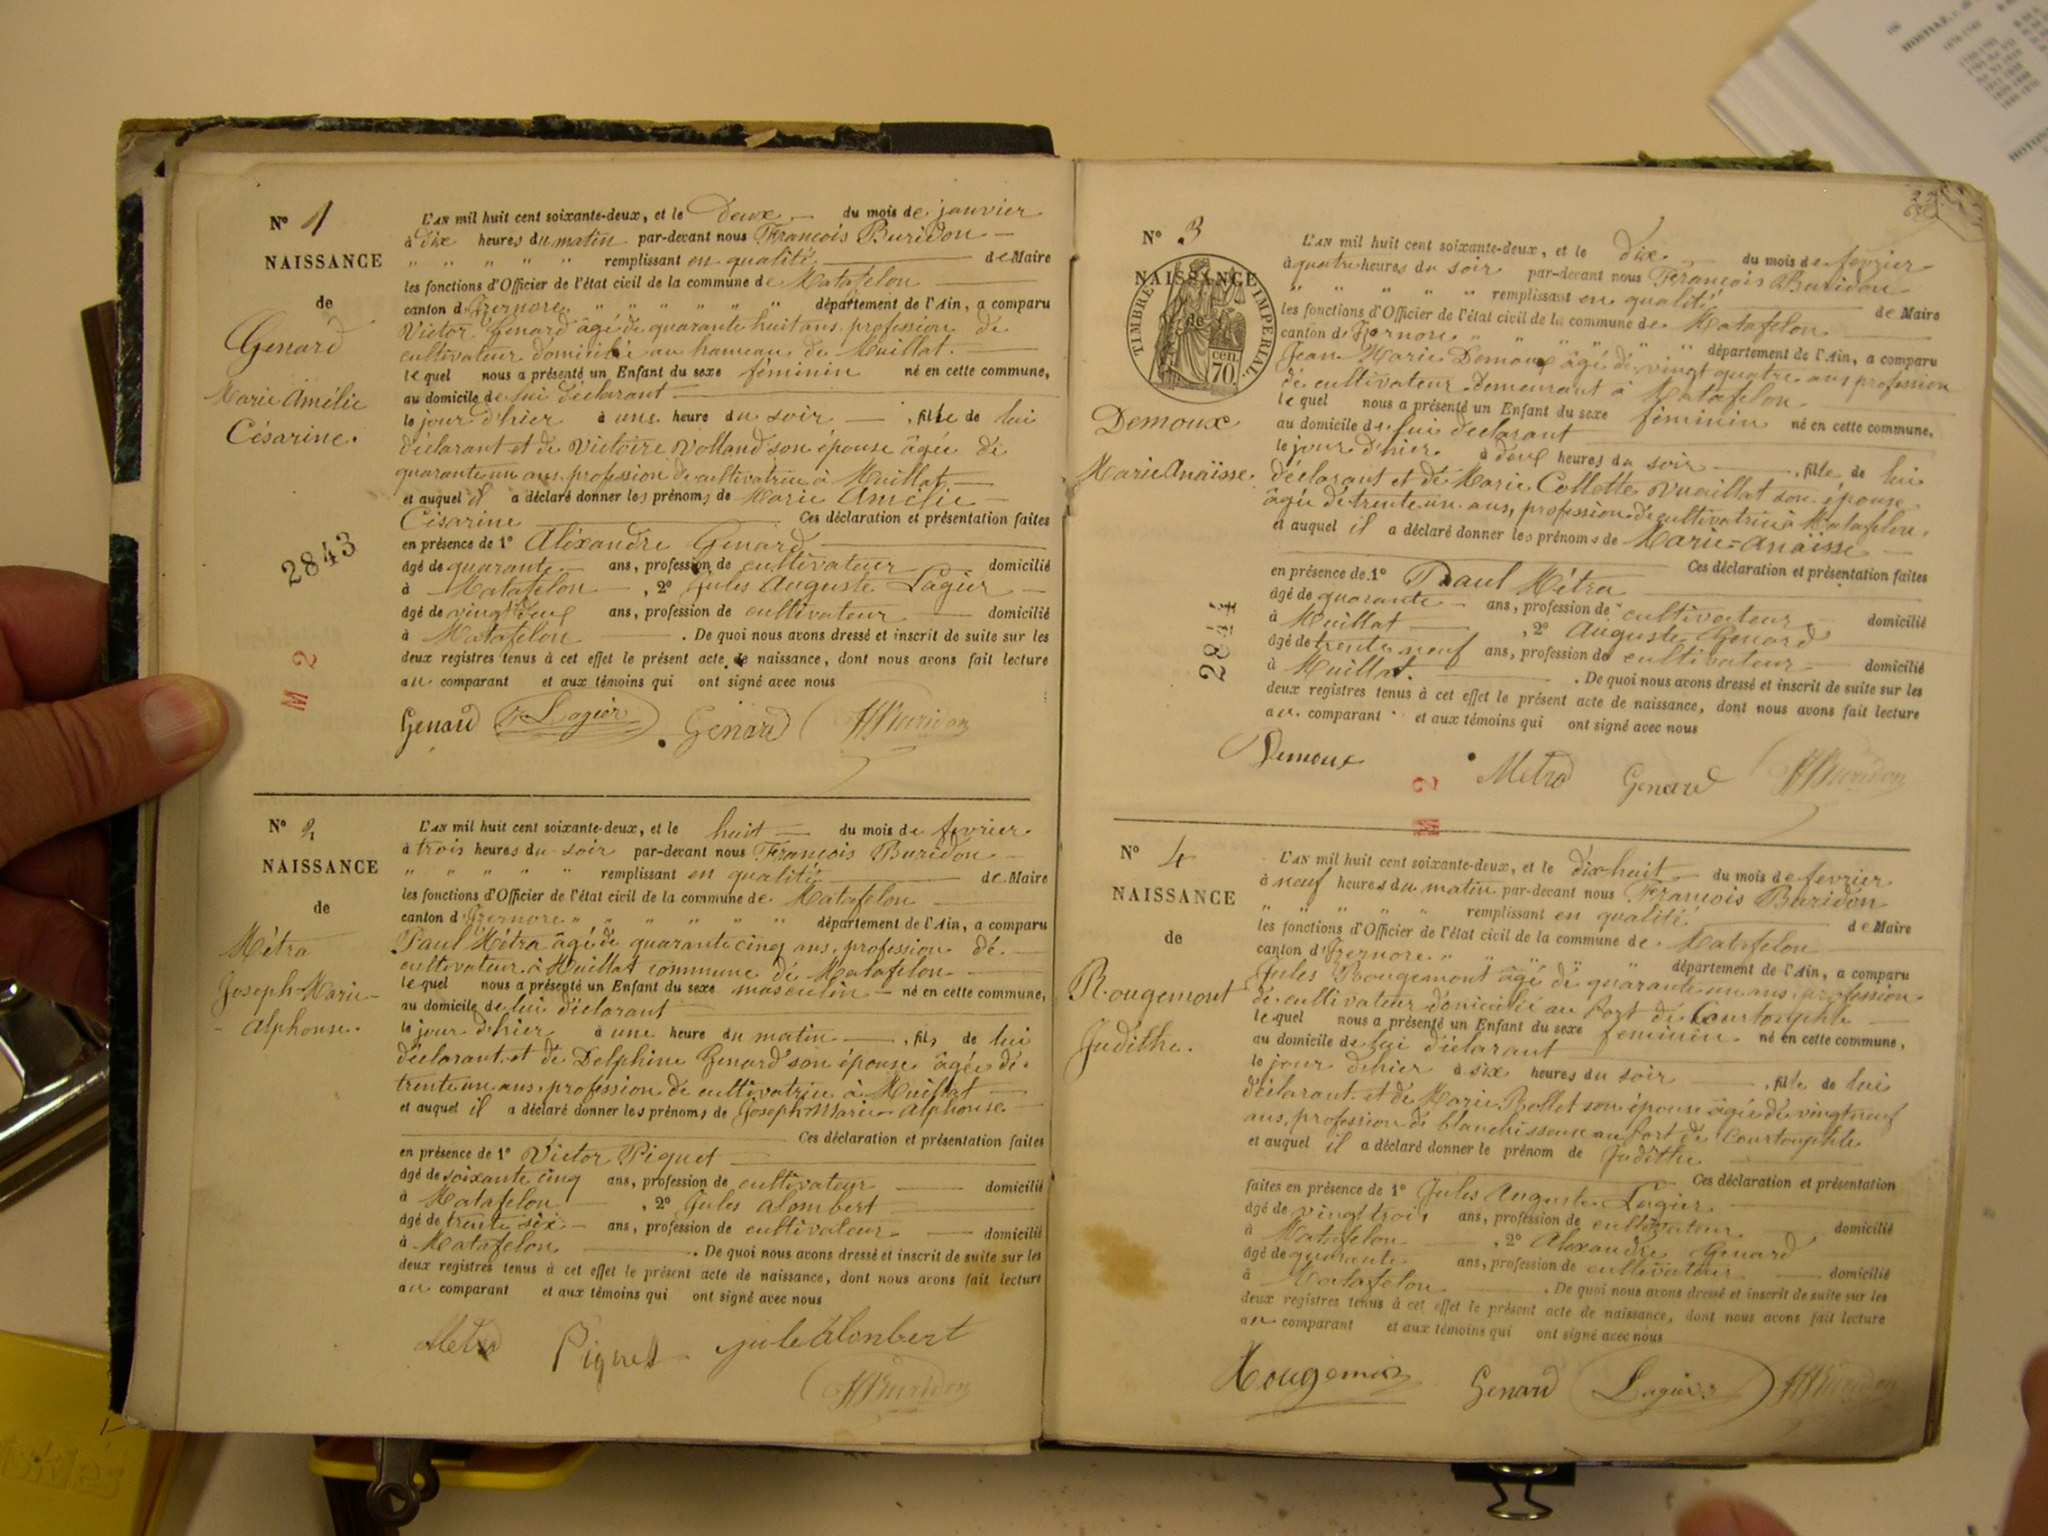 N° 1
NAISSANCE
de
Genard
Marie Amélie
Césarine.
2843
M 2
L'AN mil huit cent soixante-deux, et le Deux du mois de janvier
à dix heures du matin par-devant nous François Buridon
" " " " " remplissant en qualité de Maire
les fonctions d'Officier de l'état civil de la commune de Matafelon
canton d'Izernore " " " " " " département de l'Ain, a comparu
Victor Genard âgé de quarante huit ans, profession de
cultivateur domicilié au hameau de Heuillat.
lequel nous a présenté un Enfant du sexe féminin né en cette commune,
au domicile de lui déclarant
le jour d'hier à une heure du soir , fille de lui
déclarant et de Victoire Volland son épouse âgée de
quarante un ans, profession de cultivatrice à Heuillat
et auquel il a déclaré donner les prénoms de Marie Amélie
Césarine Ces déclaration et présentation faites
en présence de 1° Alexandre Genard
âgé de quarante ans, profession de cultivateur domicilié
à Matafelon , 2° Jules Auguste Lagier
âgé de vingt deux ans, profession de cultivateur domicilié
à Matafelon . De quoi nous avons dressé et inscrit de suite sur les
deux registres tenus à cet effet le présent acte de naissance, dont nous avons fait lecture
au comparant et aux témoins qui ont signé avec nous
Genard Lagier Genard Buridon
N° 2
NAISSANCE
de
Métra
Joseph-Marie-
-Alphonse.
L'AN mil huit cent soixante-deux, et le huit du mois de février
à trois heures du soir par-devant nous François Buridon
" " " " " remplissant en qualité de Maire
les fonctions d'Officier de l'état civil de la commune de Matafelon
canton d'Izernore " " " " " " département de l'Ain, a comparu
Paul Métra âgé de quarante cinq ans, profession de
cultivateur à Heuillat commune de Matafelon
lequel nous a présenté un Enfant du sexe masculin né en cette commune,
au domicile de lui déclarant
le jour d'hier à une heure du matin , fils de lui
déclarant et de Delphine Genard son épouse âgée de
trente un ans, profession de cultivatrice à Heuillat
et auquel il a déclaré donner les prénoms de Joseph Marie Alphonse
Ces déclaration et présentation faites
en présence de 1° Victor Piquet
âgé de soixante cinq ans, profession de cultivateur domicilié
à Matafelon , 2° Jules Alombert
âgé de trente six ans, profession de cultivateur domicilié
à Matafelon . De quoi nous avons dressé et inscrit de suite sur les
deux registres tenus à cet effet le présent acte de naissance, dont nous avons fait lecture
au comparant et aux témoins qui ont signé avec nous
Metra Piquet jule Alonbert
Buridon
N° 3
NAISSANCE
de
TIMBRE IMPERIAL
70 cen.
Demoux
Marie Anaïsse.
2844
M 2
L'AN mil huit cent soixante-deux, et le dix du mois de février
à quatre heures du soir par-devant nous François Buridon
" " " " " remplissant en qualité de Maire
les fonctions d'Officier de l'état civil de la commune de Matafelon
canton d'Izernore " " " " " département de l'Ain, a comparu
Jean Marie Demoux âgé de vingt quatre ans profession
de cultivateur demeurant à Matafelon
lequel nous a présenté un Enfant du sexe féminin né en cette commune,
au domicile de lui déclarant
le jour d'hier à deux heures du soir , fille de lui
déclarant et de Marie Collette Vuaillat son épouse
âgée de trente un ans, profession de cultivatrice à Matafelon.
et auquel il a déclaré donner les prénoms de Marie=Anaïsse
Ces déclaration et présentation faites
en présence de 1° Paul Métra
âgé de quarante ans, profession de cultivateur domicilié
à Heuillat , 2° Auguste Genard
âgé de trente neuf ans, profession de cultivateur domicilié
à Heuillat. . De quoi nous avons dressé et inscrit de suite sur les
deux registres tenus à cet effet le présent acte de naissance, dont nous avons fait lecture
au comparant et aux témoins qui ont signé avec nous
Demoux Metra Genard Buridon
N° 4
NAISSANCE
de
Rougemont
Judithe.
L'AN mil huit cent soixante-deux, et le dix huit du mois de février
à neuf heures du matin par-devant nous François Buridon
" " " " " remplissant en qualité de Maire
les fonctions d'Officier de l'état civil de la commune de Matafelon
canton d'Izernore " " " " " département de l'Ain, a comparu
Jules Rougemont âgé de quarante un ans, profession
de cultivateur domicilié au Port de Courtouphle
lequel nous a présenté un Enfant du sexe féminin né en cette commune,
au domicile de lui déclarant
le jour d'hier à six heures du soir , fille de lui
déclarant et de Marie Rollet son épouse âgée de vingt neuf
ans, profession de blanchisseuse au Port de Courtouphle
et auquel il a déclaré donner le prénom de Judithe
Ces déclaration et présentation
faites en présence de 1° Jules Auguste Lagier
âgé de vingt trois ans, profession de cultivateur domicilié
à Matafelon , 2° Alexandre Genard
âgé de quarante ans, profession de cultivateur domicilié
à Matafelon . De quoi nous avons dressé et inscrit de suite sur les
deux registres tenus à cet effet le présent acte de naissance, dont nous avons fait lecture
au comparant et aux témoins qui ont signé avec nous
Rougemont Genard Lagier Buridon